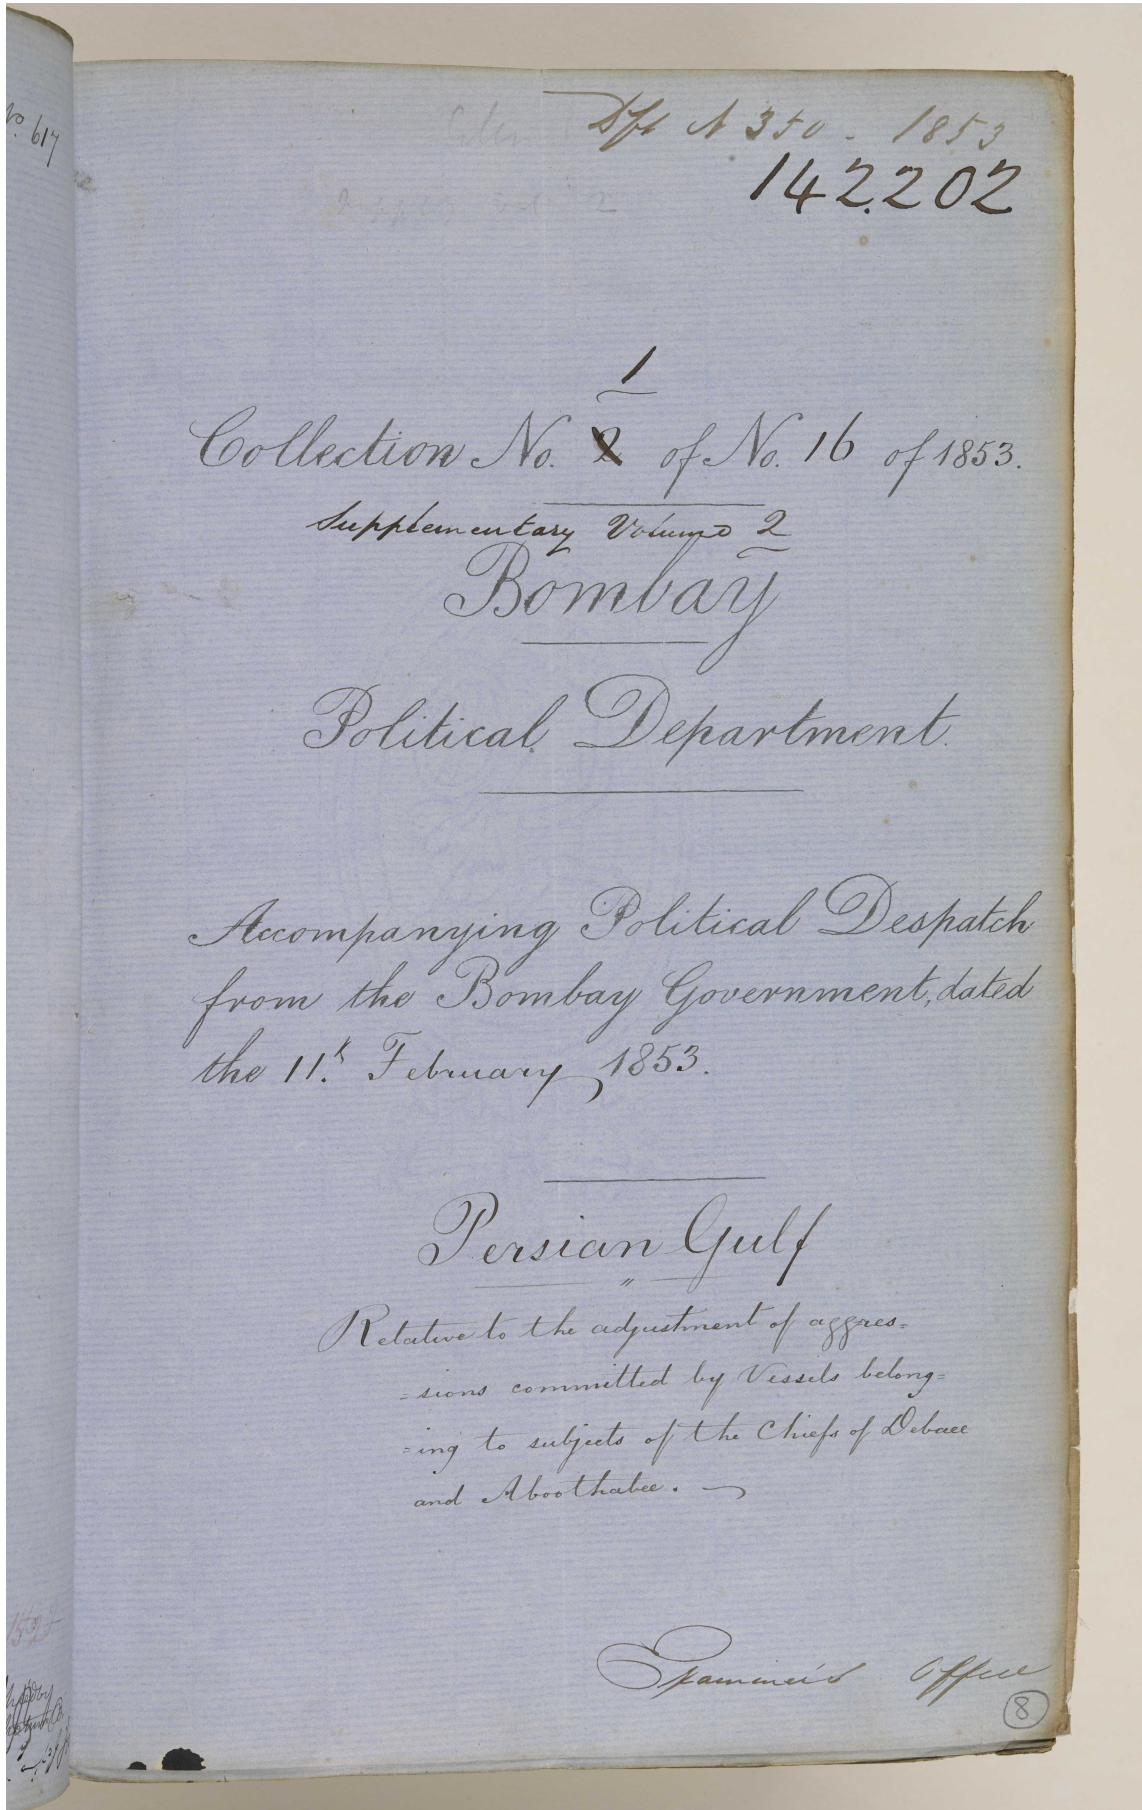 No. 617
Dft N 350 - 1853
142.202
1
Collection No. 2 of No. 16 of 1853.
Supplementary Volume 2
Bombay
Political Department.
Accompanying Political Despatch
from the Bombay Government, dated
the 11th. February 1853.
Persian Gulf
"
Relative to the adjustment of aggres=
=sions committed by Vessels belong=
=ing to subjects of the Chiefs of Debaee
and Aboothabee.
Examiner's Office
8